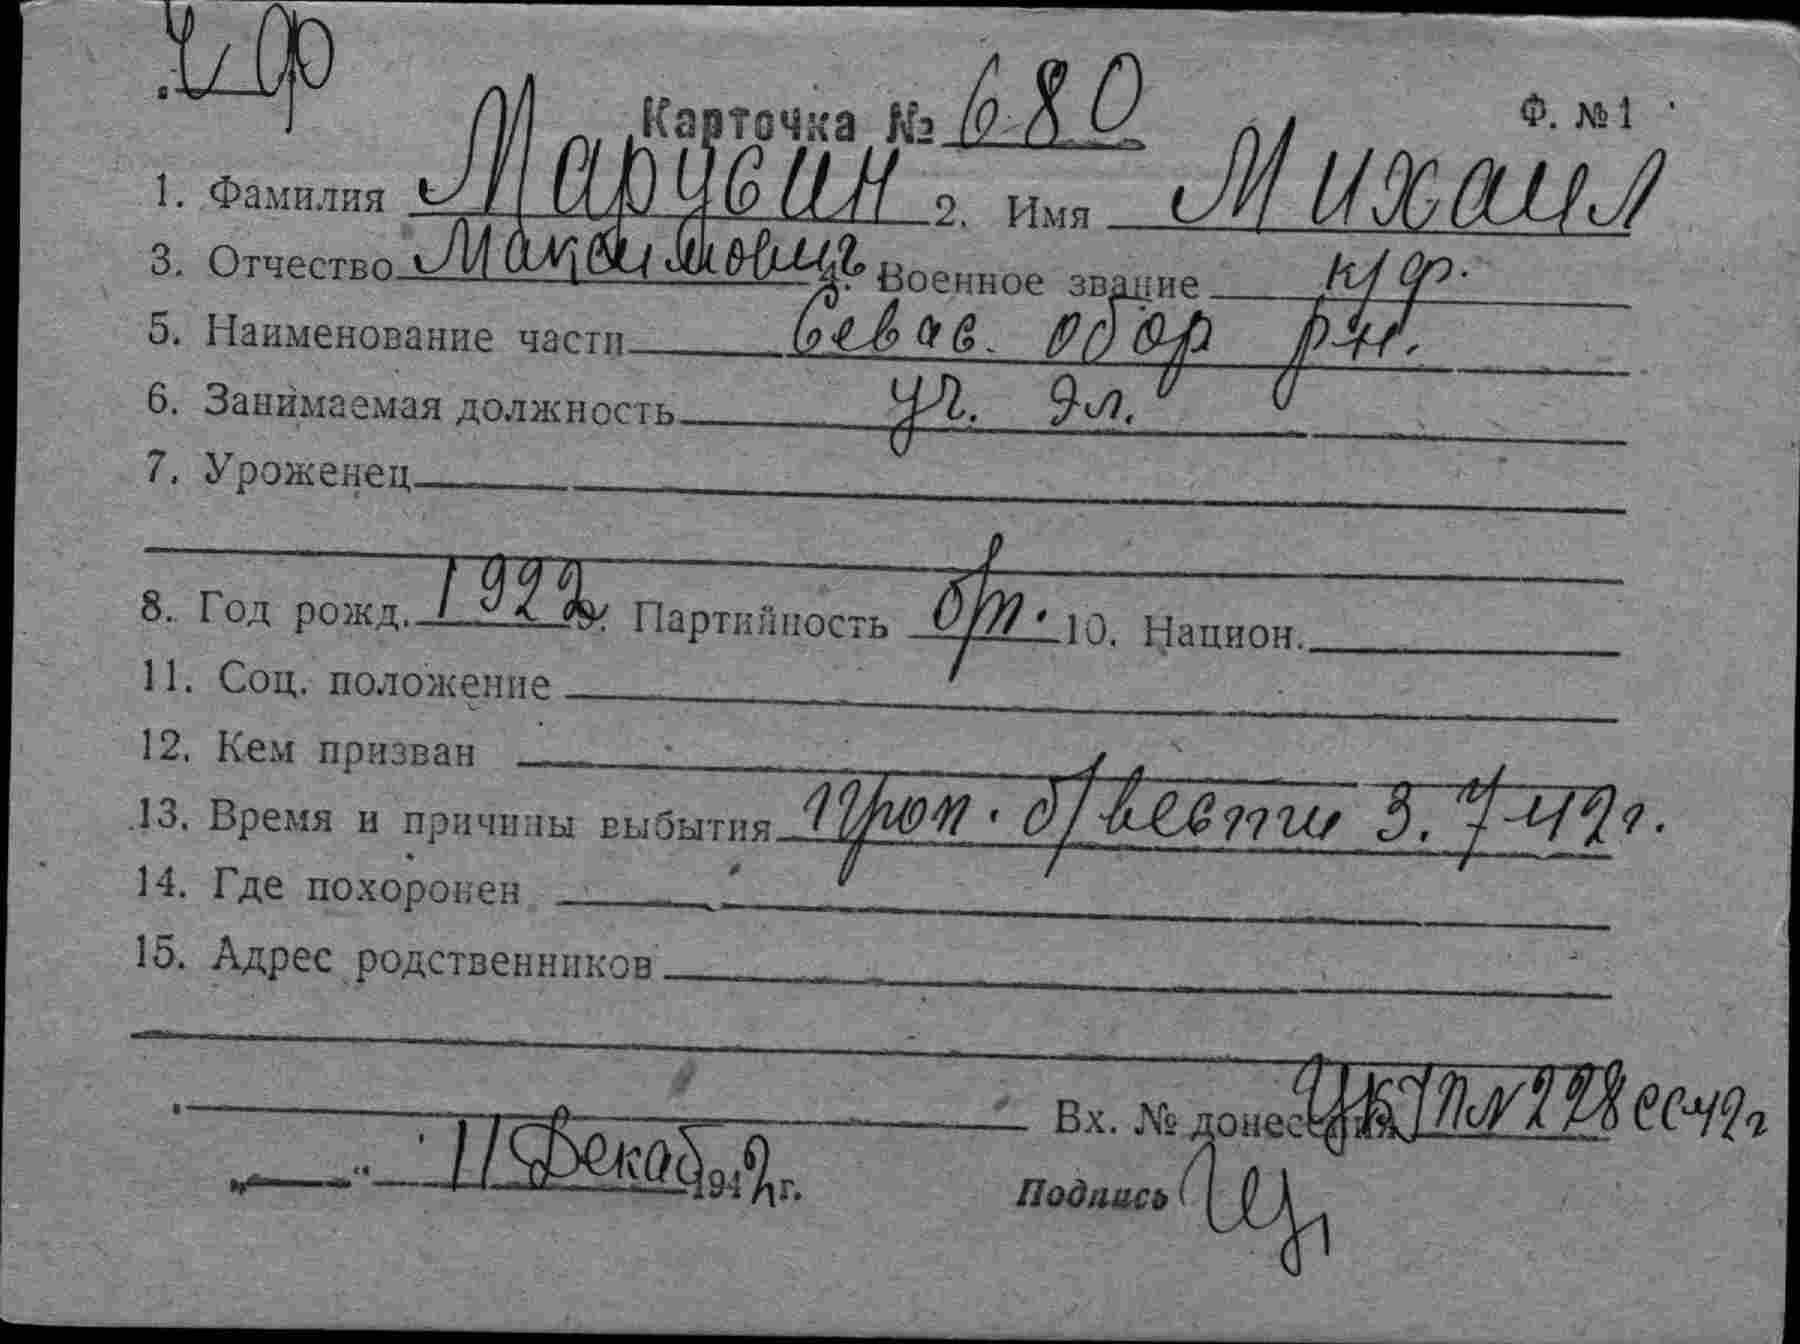 Ч/Ф
Карточка № 680 Ф. №1
1. Фамилия Марусин 2. Имя Михаил
3. Отчество Максимович 4. Военное звание к/ф.
5. Наименование части Севас. обор р-н.
6. Занимаемая должность уч. эл.
7. Уроженец
8. Год рожд. 1922 9. Партийность б/п. 10. Национ.
11. Соц. положение
12. Кем призван
13. Время и причины выбытия Проп. б/вести 3.7-42г.
14. Где похоронен
15. Адрес родственников
Вх. № донесения 228сс-42г
„ “ 11 Декаб 1942 г. Подпись